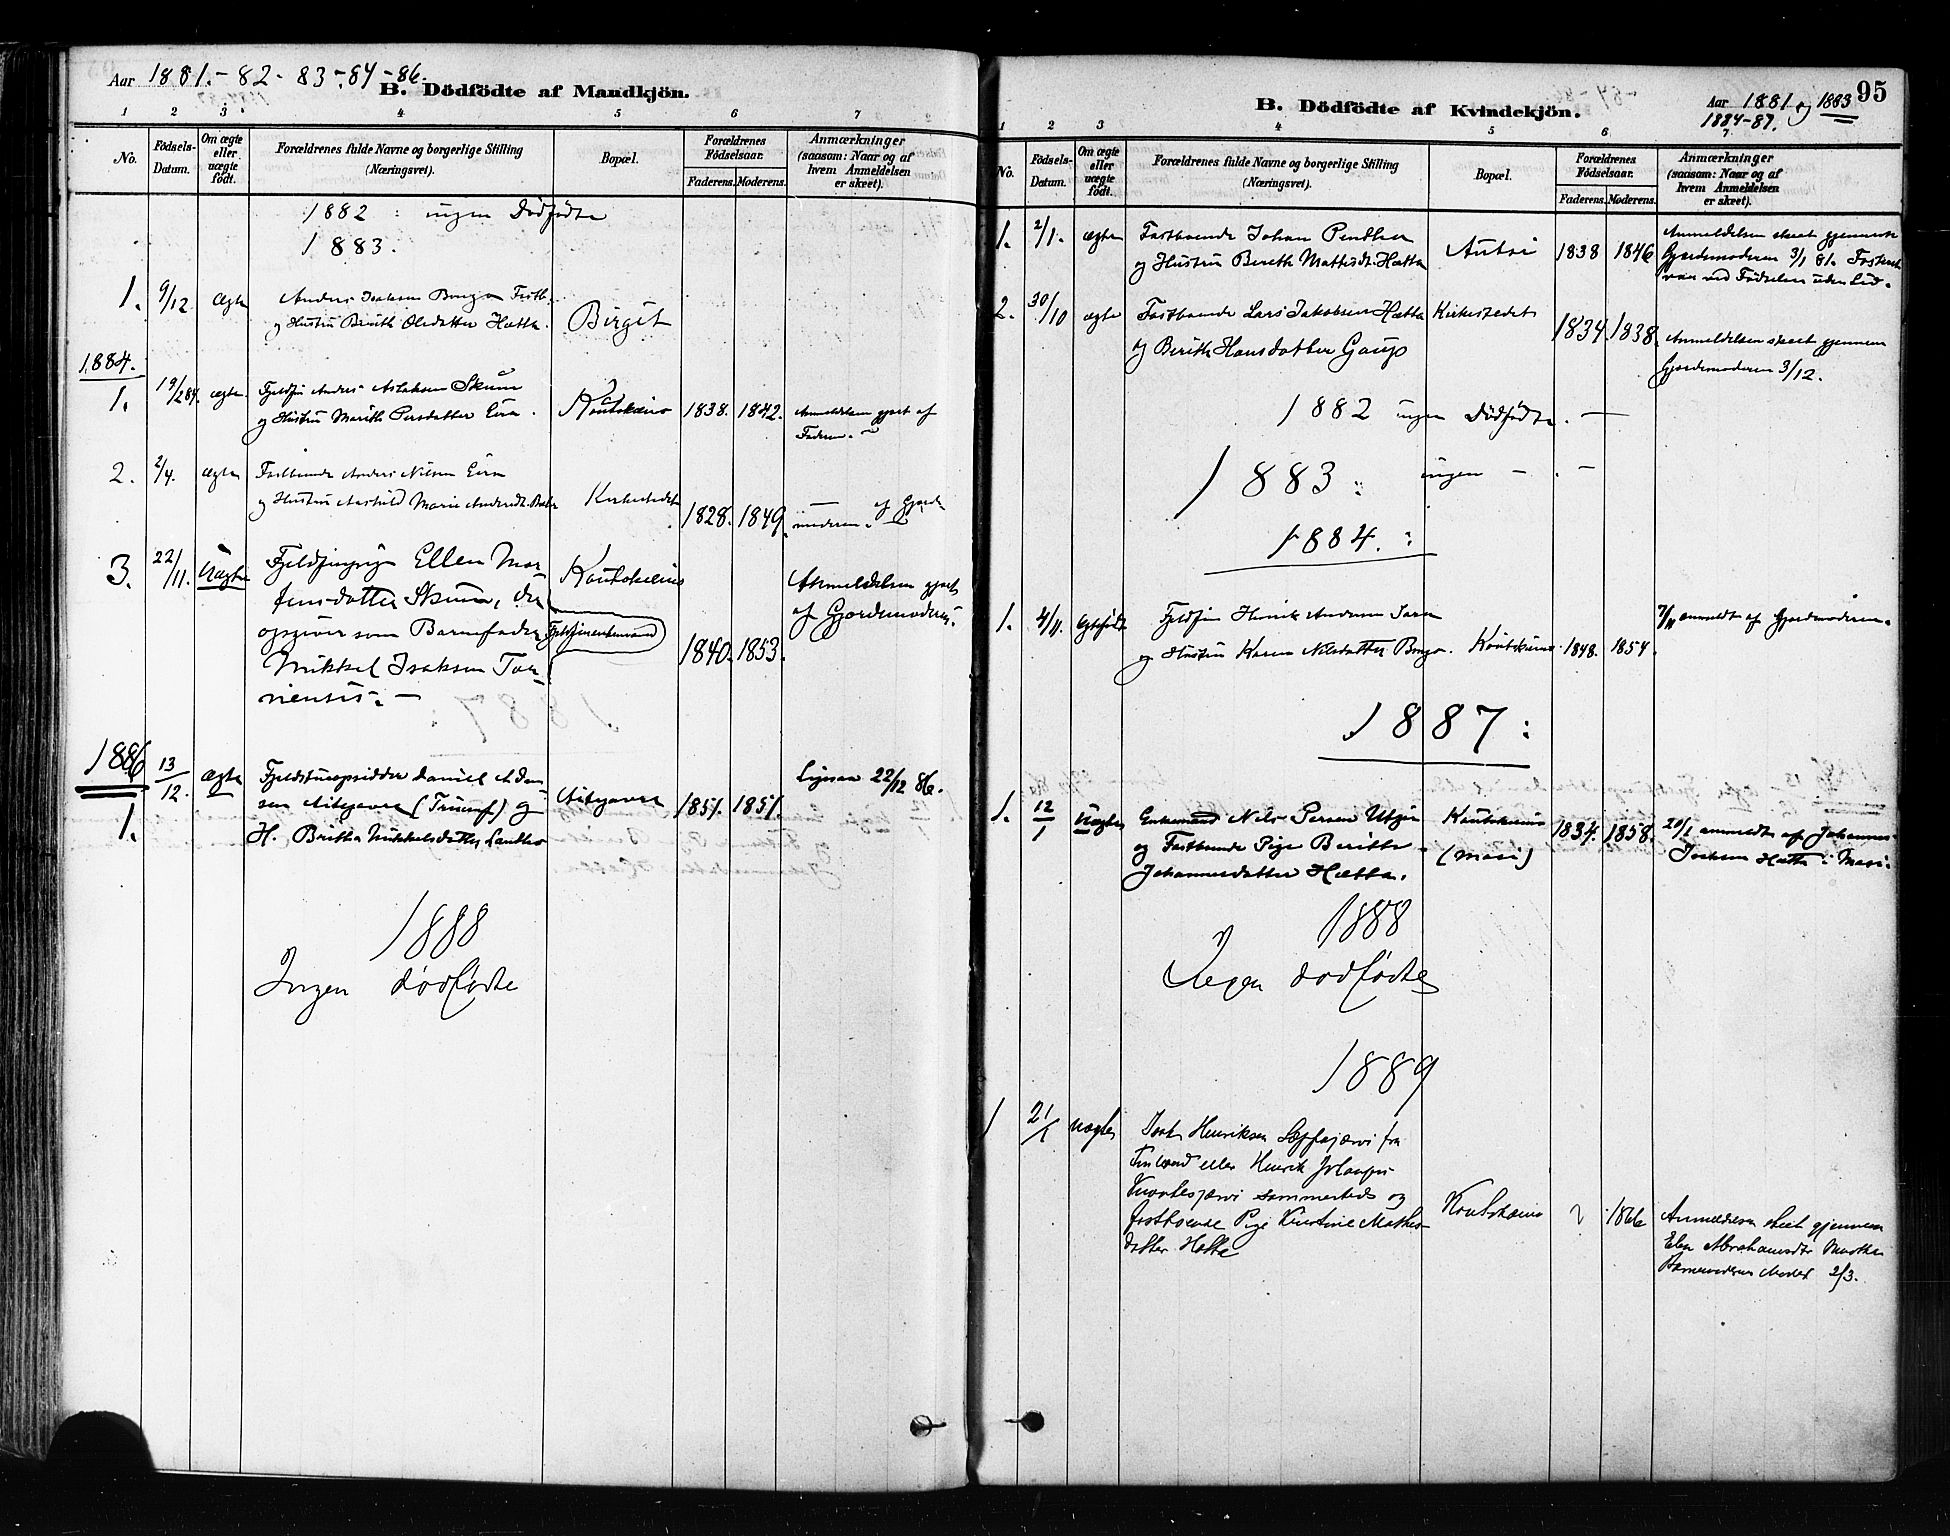 Aar 1881.-82-83-84-86.
B. Dödfödte af Mandkjön.
1 2 3 4 5 6 7
No.
Födsels-Datum.
Om ægte eller uægte födt.
Forældrenes fulde Navne og borgerlige Stilling (Næringsvei).
Bopæl.
Forældrenes Födselsaar.
Faderens. Moderens.
Anmærkninger (saasom: Naar og af hvem Anmeldelsen er skeet).
1882 : ingen Dödfödte
1883.
1. 9/12 Ægte Anders Isaksen Bongo Fastb.
og Hustru Berith Olsdatter Hætta. Birgit
1884.
1. 19/2 84. ægte. Fjeldfin Anders Aslaksen Skum
og Hustru Marith Persdatter Eira. Koutokeino 1838. 1842. Anmeldelsen gjort af
Faderen.
2. 2/4. Ægte Fastboende Anders Nilsen Eira
og Hustru Marie Andersdt. Kirkestedet 1828. 1849. — af Gjorde-
moderen.
3. 22/11. Uægte Fjeldfinpige Ellen Mor-
tensdatter Skum, der
opgiver som Barnefader
Mikkel Isaksen Tor-
nensis. —
Koutokeino
Fjeldfinenkemand
1840. 1853.
Anmeldelsen gjort
af Gjordemoderen.
1886
1. 13/12. Ægte Fjeldstueopsidder Daniel Adam-
sen Aitejavre (Triumf) og
H. Britha Mikkelsdatter Lantho
Aitejavre 1851. 1851. 22/12 86.
1888
Ingen dødfødte
95
B. Dödfödte af Kvindekjön.
Aar 1881 og 1883
1884-87.
1 2 3 4 5 6 7
No.
Födsels-Datum.
Om ægte eller uægte födt.
Forældrenes fulde Navne og borgerlige Stilling (Næringsvei).
Bopæl.
Forældrenes Födselsaar.
Faderens. Moderens.
Anmærkninger (saasom: Naar og af hvem Anmeldelsen er skeet).
1. 2/1. ægte Fastboende Johan Penthа
og Hustru Berith Mathisdt. Hætta Autsi 1838 1846 Anmeldelsen skeet gjennem
Gjordemoderen 3/1 81. Fosteret
var ved Fødselen uden Liv.
2. 30/10 ægte Fastboende Lars Jakobsen Hætta
og Berith Hansdatter Gaup
Kirkestedet 1834. 1838. Anmeldelsen skeet gjennem
Gjordemoderen 3/12.
1882 ingen Dödfödte. —
1883 : ingen — . —
1884. :
1. 4/11. Ægtefødt Fjeldfin Henrik Andersen Sara
og Hustru Karen Nilsdatter Bongo. Koutokeino. 1848. 1854. 7/11 anmeldt af Gjordemoderen.
1887 :
1. 12/1 Uægte Enkemand Nils Persen Utsi
og Fastboende Pige Berithe
Johannesdatter Hætta.
Koutokeino
(Masi) 1834. 1858. 20/1 anmeldt af Johannes
Isaksen Hætta i Masi.
1888
Ingen dødfødte
1889
1 21/1 Uægte Isak Henriksen Leppejærvi fra
Finland eller Henrik
sammesteds og
fastboende Pige Kirstine Mathis-
datter Hætta
Koutokeino ? 1866 Anmeldelsen skeet gjennem
Elen Abrahamsdtr
Moder 2/3.